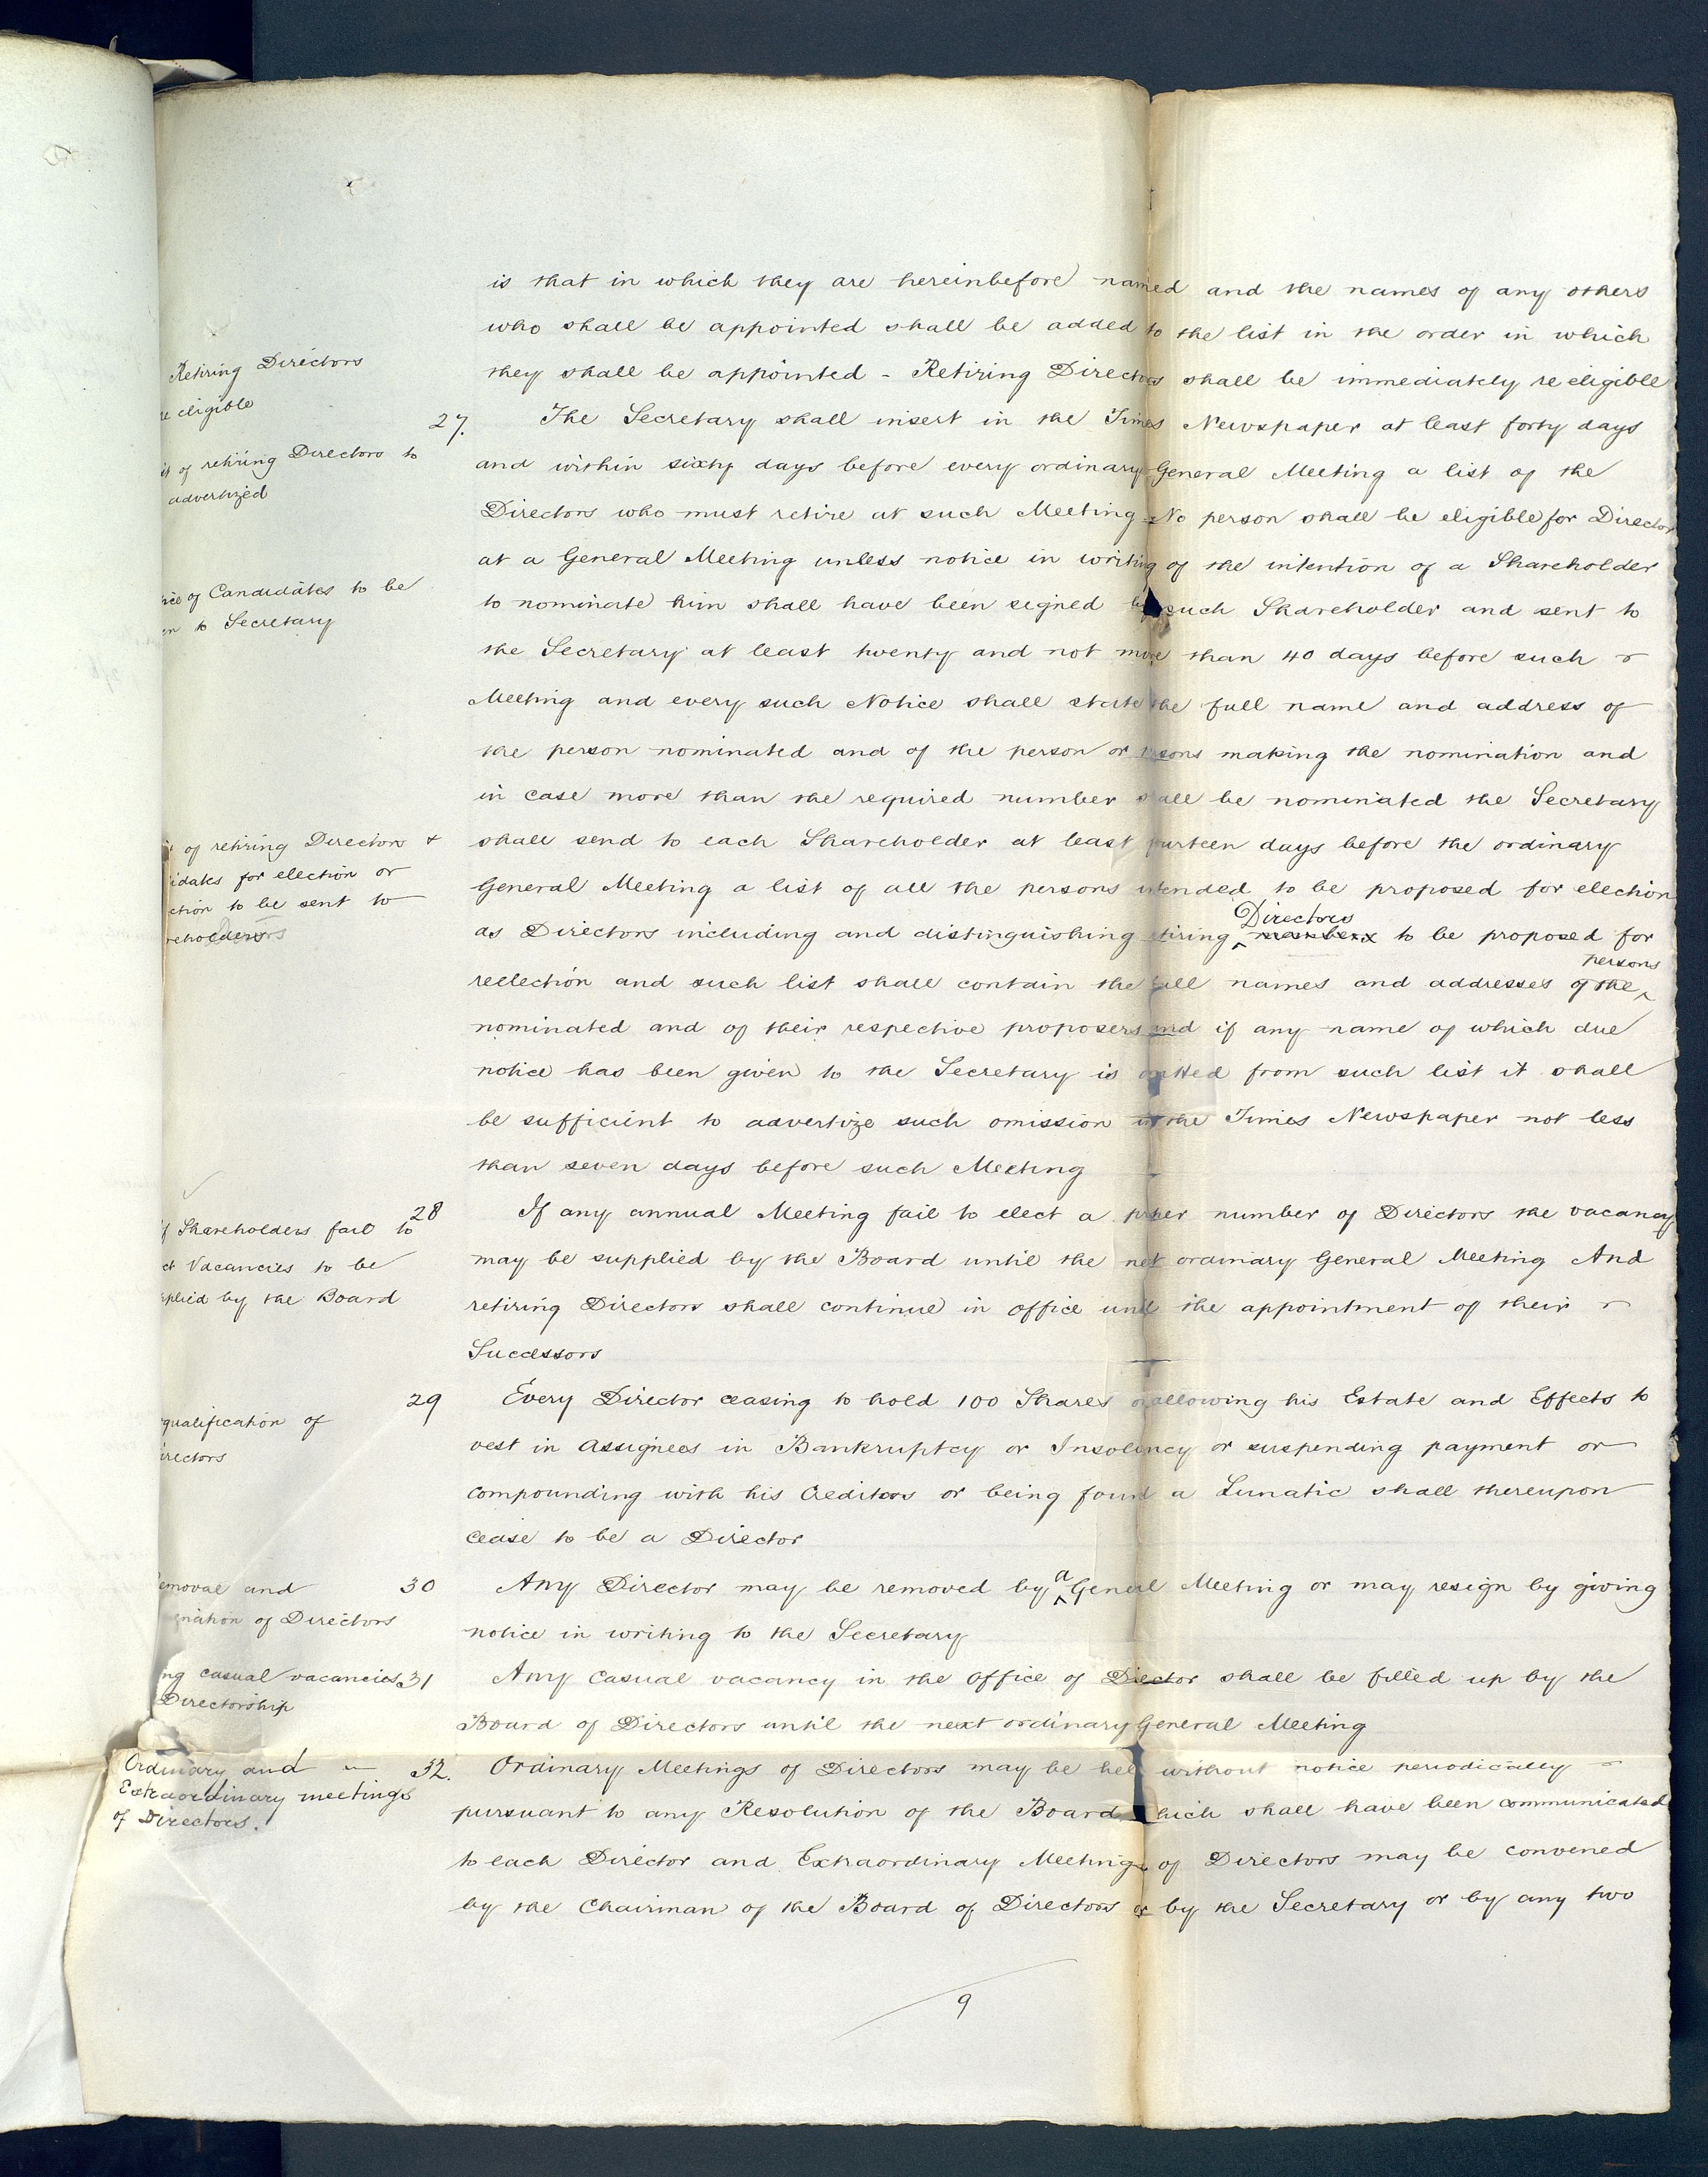 is that in which they are hereinbefore named and the names of any others
who shall be appointed shall be added to the list in the order in which
Retiring Directors
they shall be appointed - Retiring Directors shall be immediately re eligible
re eligible
27. The Secretary shall insert in the Times Newspaper at least forty days
of retiring Directors to
and within sixty days before every ordinary General Meeting a list of the
advertized
Directors who must retire at such Meeting - No person shall be eligible for Director
at a General Meeting unless notice in writing of the intention of a Shareholder
of Candidates to be
to nominate him shall have been signed by such Shareholder and sent to
to Secretary
the Secretary at least twenty and not more than 40 days before such
Meeting and every such Notice shall state the full name and address of
the person nominated and of the person or persons making the nomination and
in case more than the required number shall be nominated the Secretary
of retiring Directors &
shall send to each Shareholder at least fourteen days before the ordinary
idates for election or
General Meeting a list of all the persons intended to be proposed for election
ction to be sent to
Directors
as Directors including and distinguishing retiring members to be proposed for
reholders
persons
reelection and such list shall contain the full names and addresses of the
nominated and of their respective proposers and if any name of which due
notice has been given to the Secretary is omitted from such list it shall
be sufficient to advertize such omission in the Times Newspaper not less
than seven days before such Meeting
28 If any annual Meeting fail to elect a proper number of Directors the vacancy
If Shareholders fail to
may be supplied by the Board until the next ordinary General Meeting And
ct Vacancies to be
pplied by the Board
retiring Directors shall continue in office until the appointment of their
Successors
29 Every Director ceasing to hold 100 Shares or allowing his Estate and Effects to
qualification of
vest in Assignees in Bankruptcy or Insolvency or suspending payment or
irectors
compounding with his Creditors or being found a Lunatic shall thereupon
cease to be a Director
emoval and
30 Any Director may be removed by a General Meeting or may resign by giving
gnation of Directors
notice in writing to the Secretary
ng casual vacancies
31 Any Casual vacancy in the Office of Director shall be filled up by the
Directorship
Board of Directors until the next ordinary General Meeting
Ordinary and
32. Ordinary Meetings of Directors may be held without notice periodically
Extraordinary meetings
of Directors.
pursuant to any Resolution of the Board which shall have been communicated
to each Director and Extraordinary Meetings of Directors may be convened
by the Chairman of the Board of Directors or by the Secretary or by any two
9